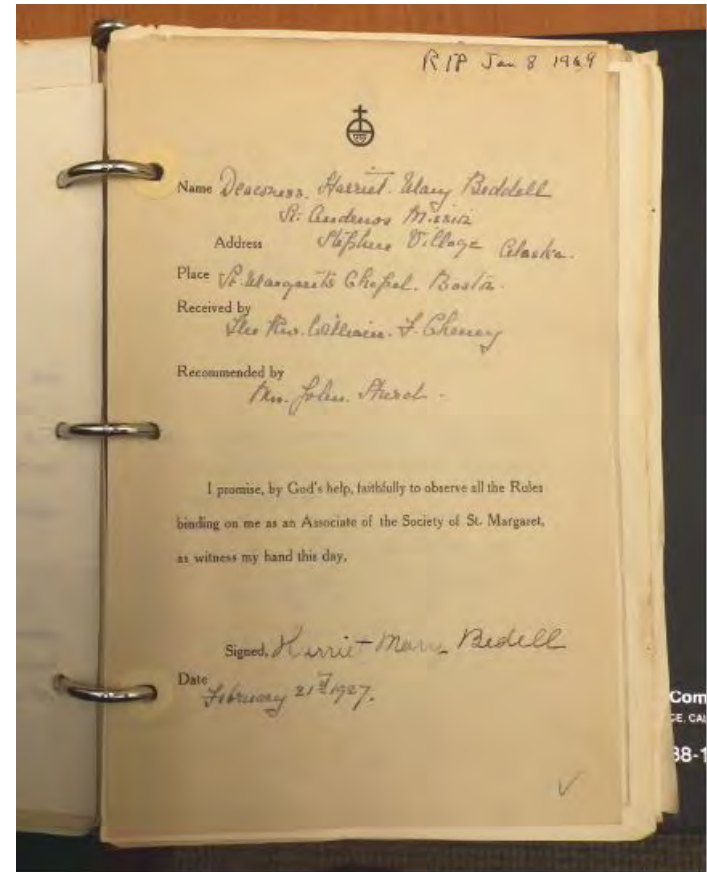 RIP Jan 8 1969
Name Deaconess. Harriet. Mary Beddell
St. Andrews Mission
Address Stephen Village Alaska.
Place St. Margarets Chapel. Boston.
Received by
The Rev. William. F. Cheney
Recommended by
Mrs. John.
I promise, by God's help, faithfully to observe all the Rules
binding on me as an Associate of the Society of St. Margaret,
as witness my hand this day,
Signed, Harriet Mary Bedell
Date
February 21st 1927.
Com
CE, CAL
38-1